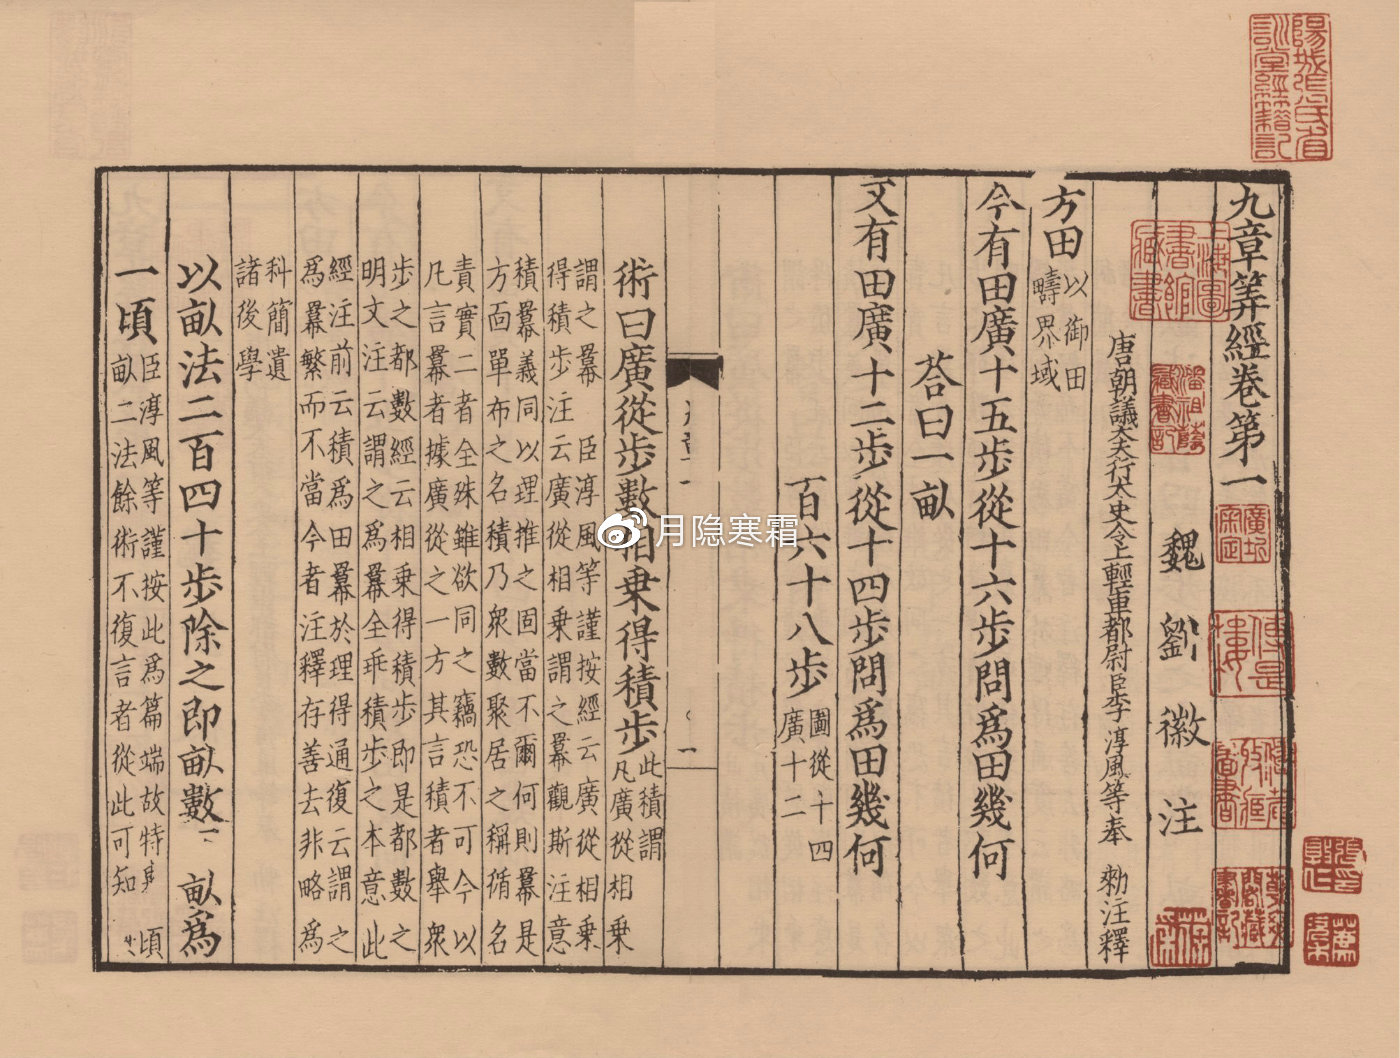 九章筭經卷第一
魏劉徽注
唐朝議大夫行太史令上輕車都尉臣李淳風等奉 勑注釋
方田以御田
疇界域
今有田廣十五步從十六步問爲田幾何
荅曰一畝
又有田廣十二步從十四步問爲田幾何
百六十八步圖從十四
廣十二
術曰廣從步數相乘得積步此積謂
凡廣從相乘
謂之冪 臣淳風等謹按經云廣從相乘
得積步注云廣從相乘謂之冪觀斯注意
積冪義同以理推之固當不爾何則冪是
方面單布之名積乃衆數聚居之稱循名
責實二者全殊雖欲同之竊恐不可今以
凡言冪者據廣從之一方其言積者舉衆
步之都數經云相乘得積步即是都數之
明文注云謂之爲冪全乖積步之本意此
經注前云積爲田冪於理得通復云謂之
爲冪繁而不當今者注釋存善去非略爲
科簡遺
諸後學
以畝法二百四十步除之即畝數 畝爲
一頃臣淳風等謹按此爲篇端故特 頃
畝二法餘術不復言者從此可知
月隐寒霜